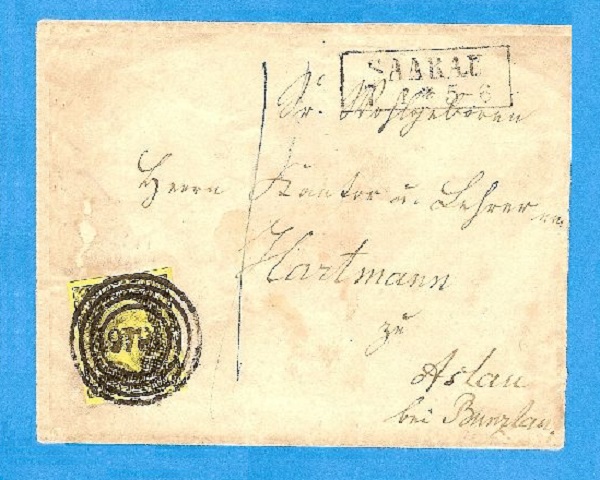 SAARAU
5-6
Sr. Wohlgeboren
Herrn Kantor u. Lehrer
Hartmann
zu
Aslau
bei Bunzlau.